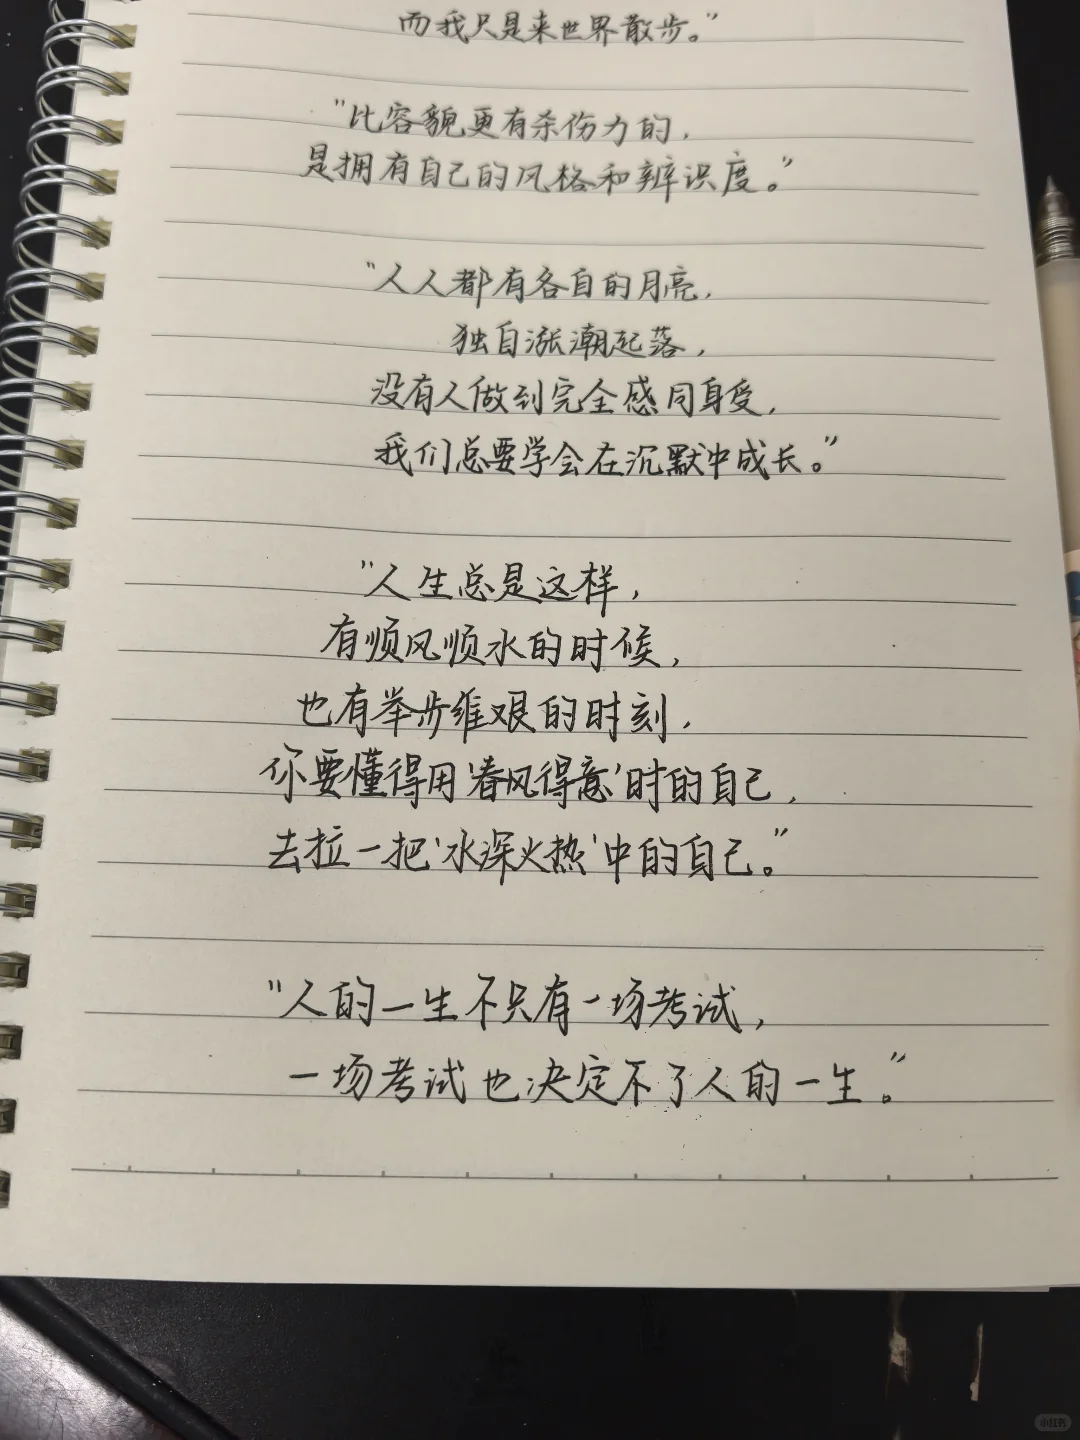 而我只是来世界散步。”
“比容貌更有杀伤力的,
是拥有自己的风格和辨识度。”
“人人都有各自的月亮,
独自涨潮起落,
没有人做到完全感同身受,
我们总要学会在沉默中成长。”
“人生总是这样,
有顺风顺水的时候,
也有举步维艰的时刻,
你要懂得用‘春风得意’时的自己,
去拉一把‘水深火热’中的自己。”
“人的一生不只有一场考试,
一场考试也决定不了人的一生。”
小红书